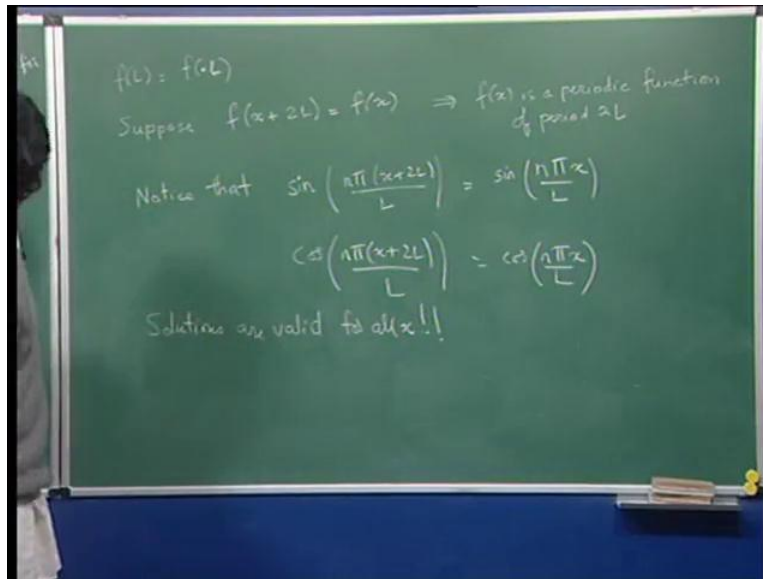 for
f(L) = f(-L)
Suppose f(x+2L) = f(x) ⇒ f(x) is a periodic function
of period 2L
Notice that sin (nπ(x+2L)/L) = sin (nπx/L)
cos (nπ(x+2L)/L) = cos (nπx/L)
Solutions are valid for all x!!